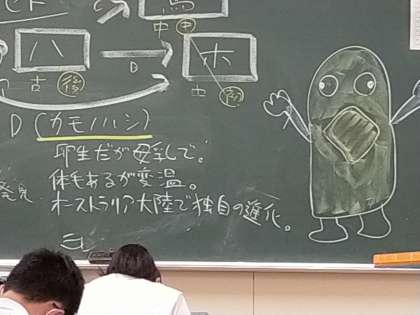 鳥
中 中
ハ D ホ
古 後 中
D (カモノハシ)
卵生だが母乳で。
体毛あるが変温。
オーストラリア大陸で独自の進化。